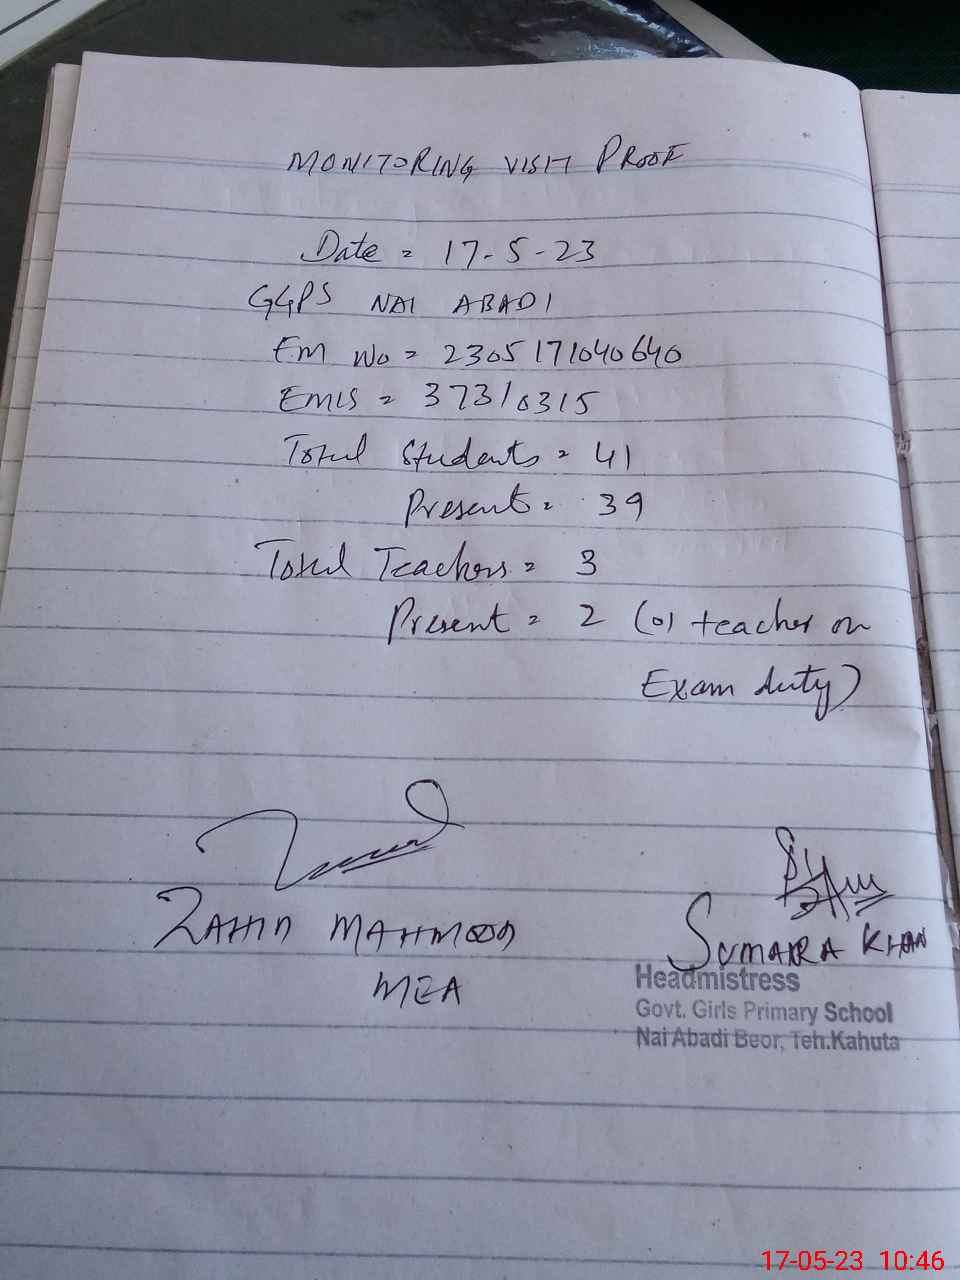 MONITORING VISIT PROOF
Date = 17-5-23
GGPS NAI ABADI
EM No = 2305171040640
EMIS = 37310315
Total Students = 41
Present = 39
Total Teachers = 3
Present = 2 (01 teacher on
Exam duty)
ZAHID MAHMOOD
MEA
SUMAIRA KHAN
Headmistress
Govt. Girls Primary School
Nai Abadi Beor, Teh.Kahuta
17-05-23 10:46